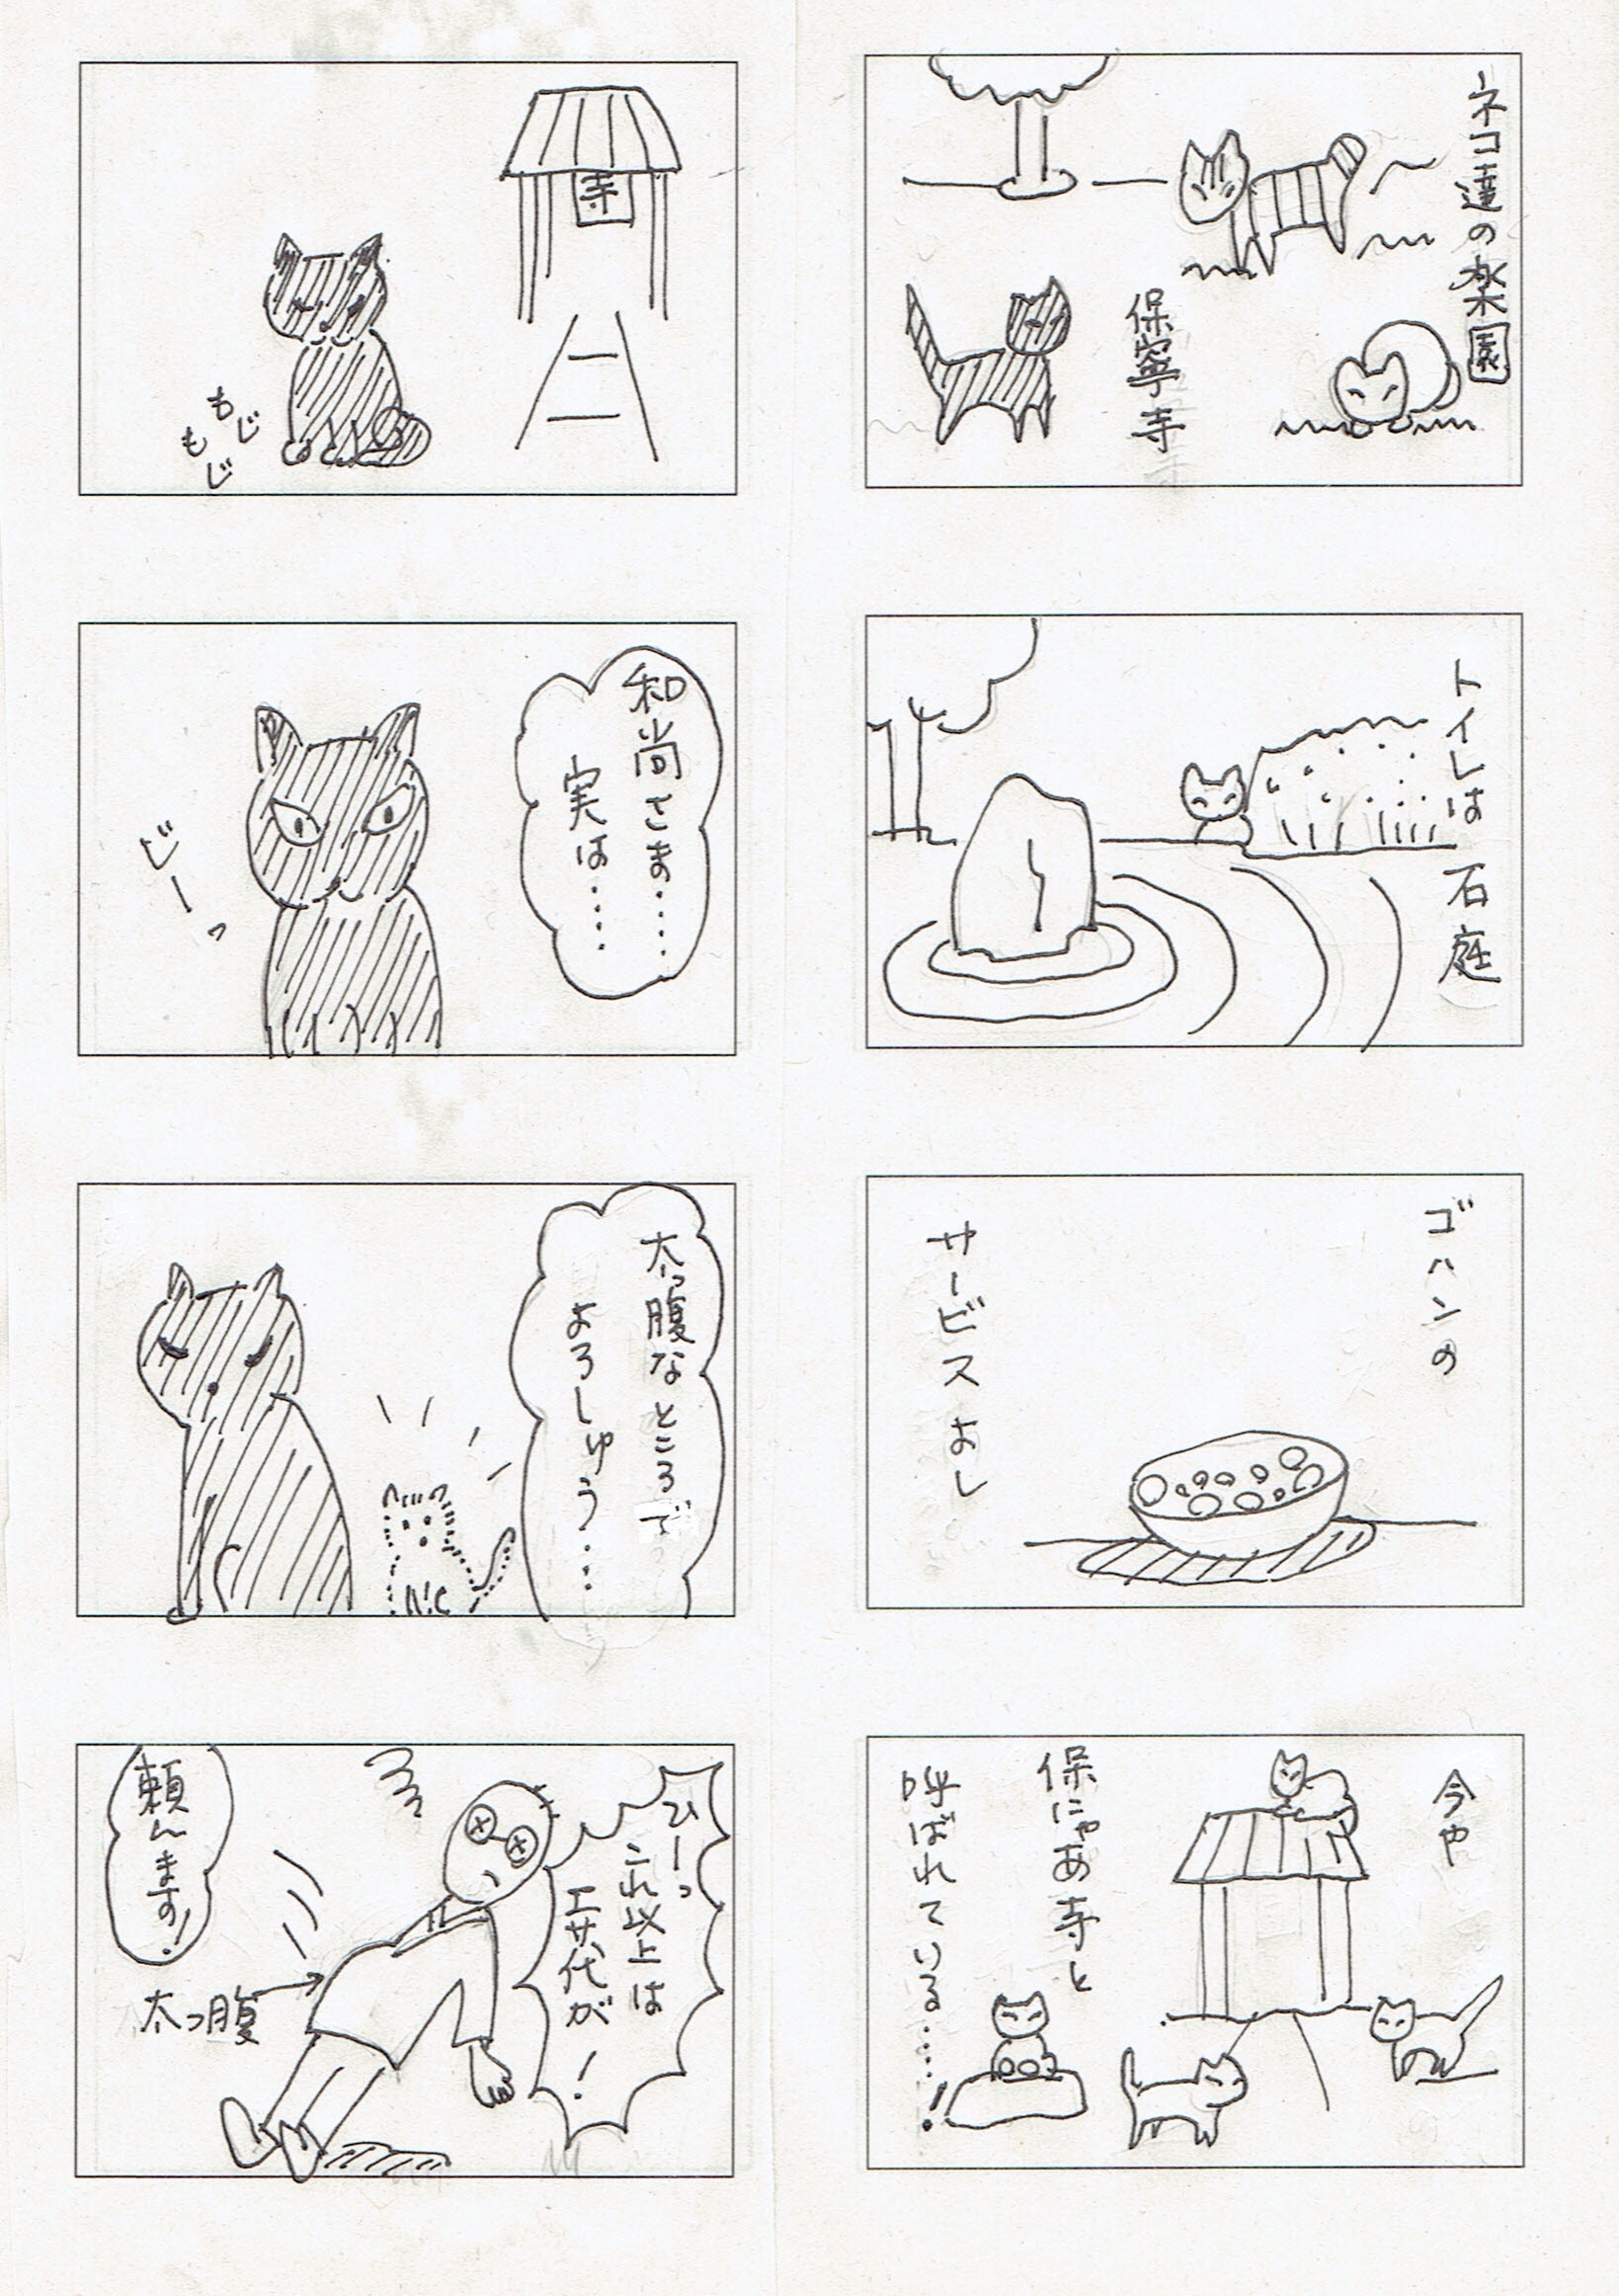 ネコ達の楽園
保寧寺
トイレは石庭
ゴハンの
サービスよし
今や
保にゃあ寺と
呼ばれている……!
寺
もじ
もじ
和尚さま……
実は……
じーっ
太っ腹なところで
よろしゅう……
ひーっ
これ以上は
エサ代が!
頼んます!
太っ腹